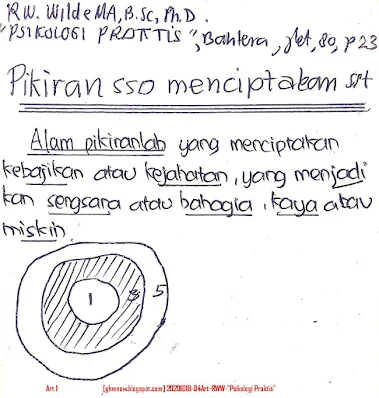 R.W. Wilde MA, B.Sc, Ph.D.
"PSIKOLOGI PRAKTIS", Bahtera, jkt, 80, p 23
Pikiran sso menciptakan srt
Alam pikiranlah yang menciptakan
kebajikan atau kejahatan, yang menjadi
kan sengsara atau bahagia, kaya atau
miskin.
1 3 5
Art 1 [ghmnew.blogspot.com] 20201018-D4Art-RWW-"Psikologi Praktis"